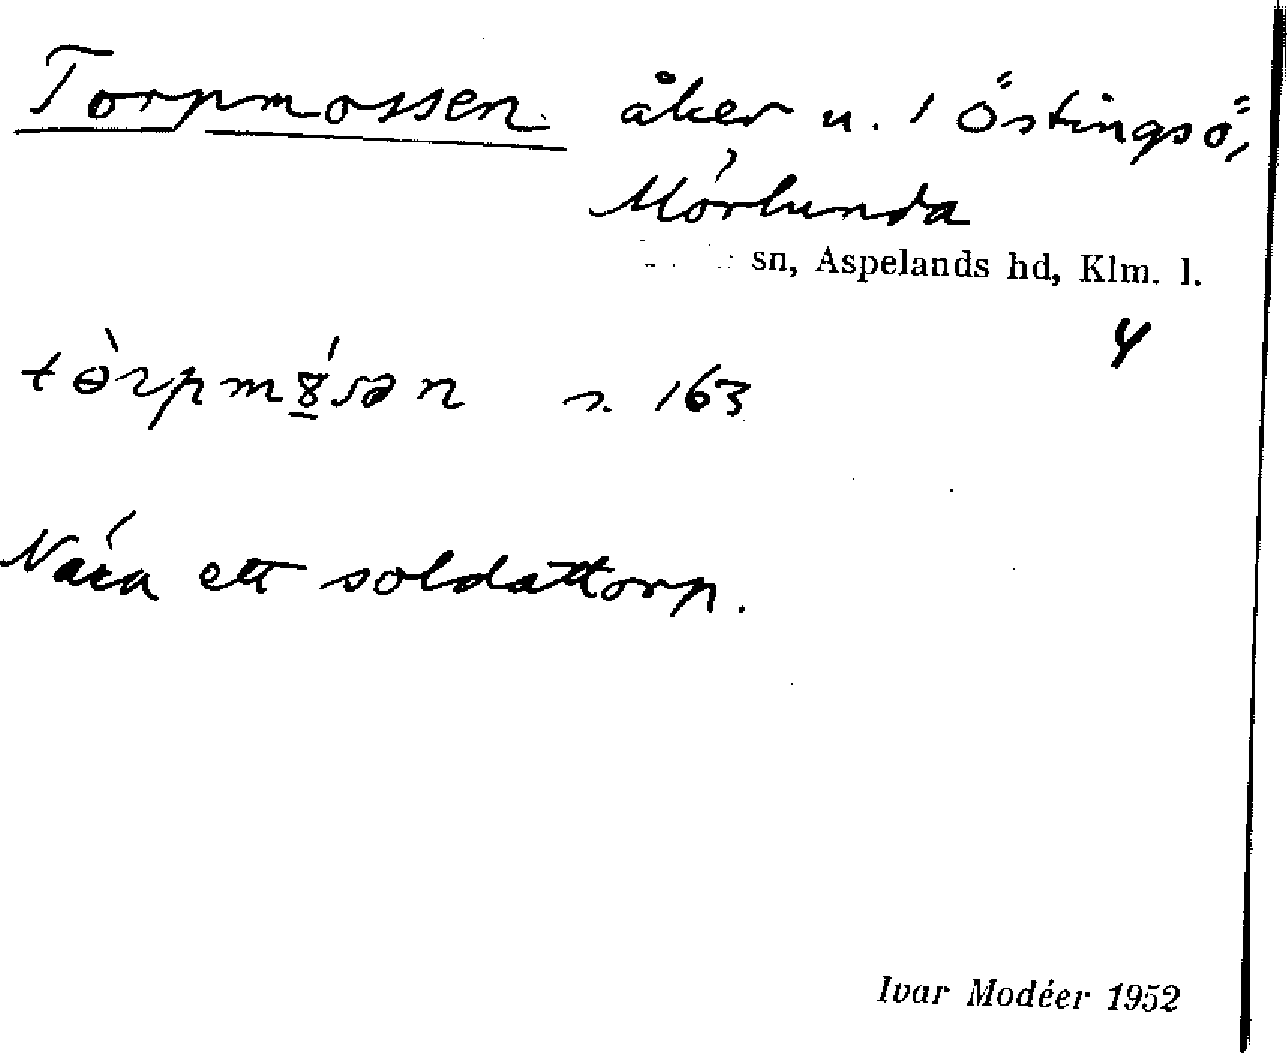 Torpmossen åker u. 1 Östingsö,
Mörlunda
sn, Aspelands hd, Klm. l.
4
tɵ̀rpmɣ̲́sən s. 163
Nära ett soldattorp.
Ivar Modéer 1952